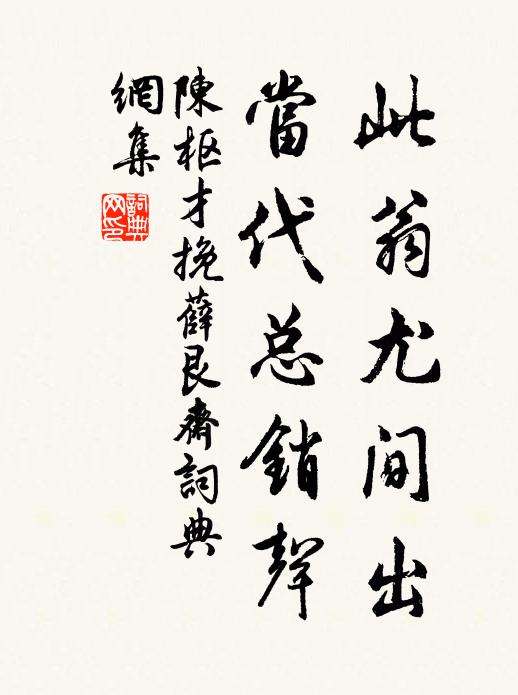 此翁尤间出
當代总銷聲
陳枢才挽薛艮齋詞典
網集
詞典网印